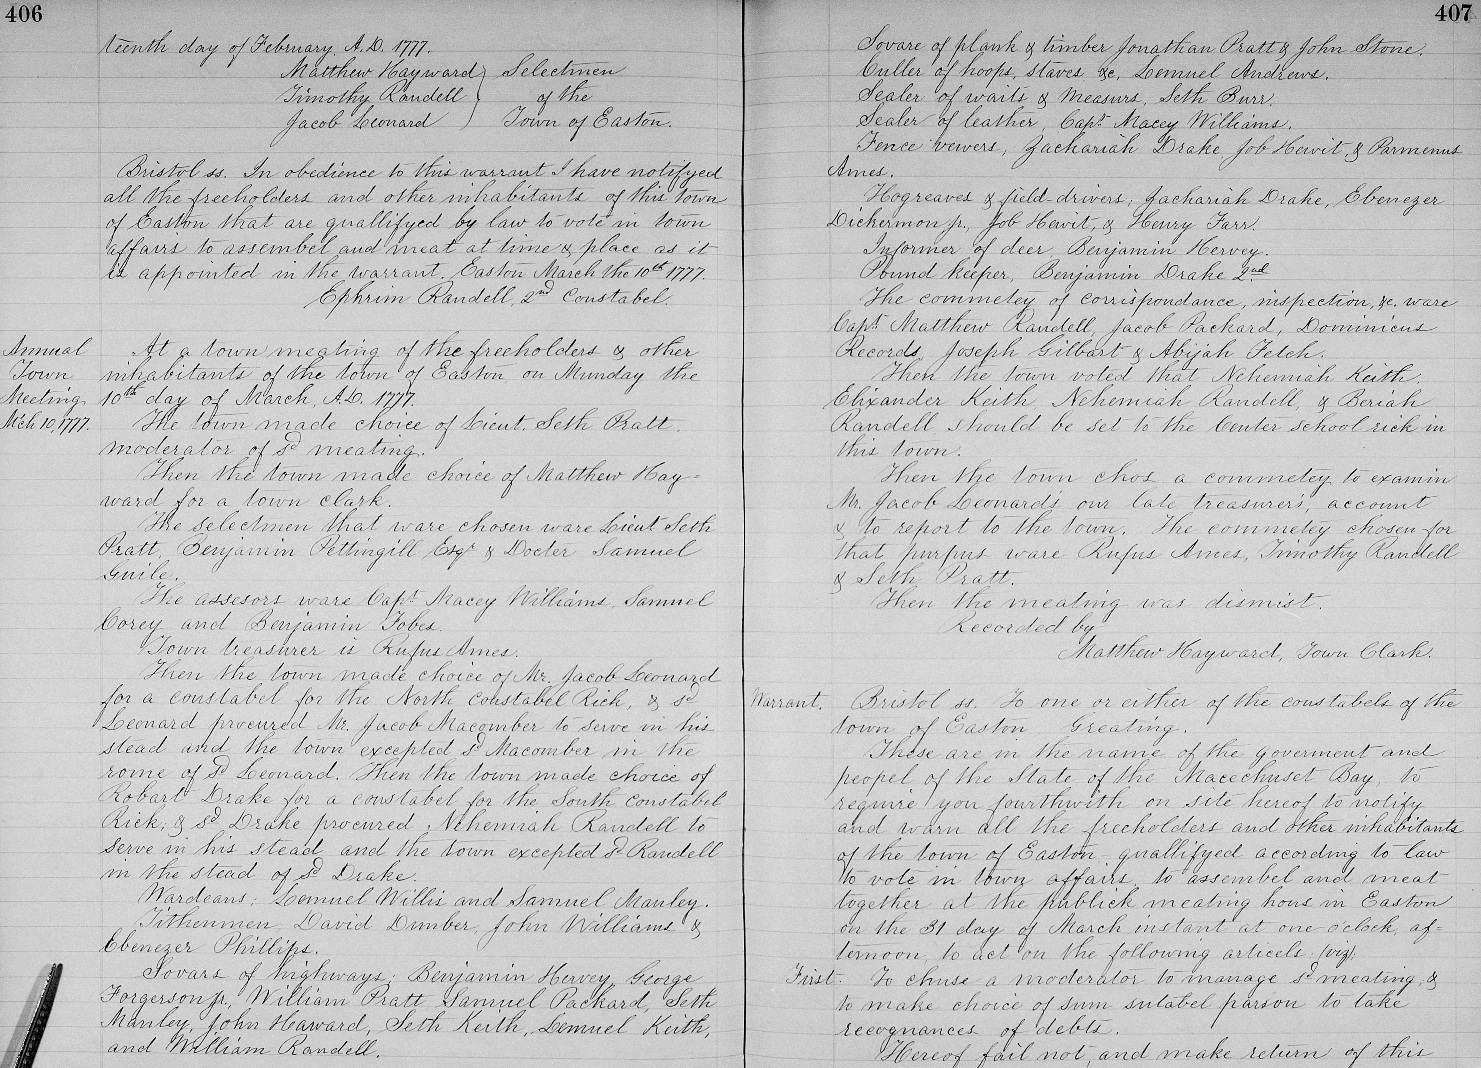 406
teenth day of February, A.D. 1777.
Matthew Hayward } Selectmen
Timothy Randell } of the
Jacob Leonard } Town of Easton.
Bristol ss. In obedience to this warrant I have notifyed
all the freeholders and other inhabitants of this town
of Easton that are quallifyed by law to vote in town
affairs to assembel and meat at time & place as it
is appointed in the warrant. Easton March the 10th 1777.
Ephrim Randell, 2nd Constabel.
Annual
Town
Meeting
Mch 10, 1777.
At a town meating of the freeholders & other
inhabitants of the town of Easton on Munday the
10th day of March, A.D. 1777.
The town made choice of Lieut. Seth Pratt
moderator of sd meating.
Then the town made choice of Matthew Hay=
ward for a town clark.
The selectmen that ware chosen ware Lieut Seth
Pratt, Benjamin Pettingill Esqr & Docter Samuel
Guile.
The assesors ware Capt. Macey Williams, Samuel
Corey and Benjamin Fobes.
Town treasurer is Rufus Ames.
Then the town made choice of Mr. Jacob Leonard
for a constabel for the North Constabel Rick, & sd
Leonard procured Mr. Jacob Macomber to serve in his
stead and the town excepted sd Macomber in the
rome of sd Leonard. Then the town made choice of
Robart Drake for a constabel for the South constabel
Rick; & sd Drake procured Nehemiah Randell to
serve in his stead and the town excepted sd Randell
in the stead of sd Drake.
Wardeans; Lemuel Willis and Samuel Manley.
Tithenmen, David Dunber, John Williams &
Ebenezer Phillips.
Sovars of highways; Benjamin Hervey, George
Forgerson jr., William Pratt, Samuel Packard, Seth
Manley, John Haward, Seth Keith, Lemuel Keith,
and William Randell.
407
Sovare of plank & timber Jonathan Pratt & John Stone.
Culler of hoops, staves &c, Lemuel Andrews.
Sealer of waits & measurs, Seth Burr.
Sealer of leather, Capt. Macey Williams.
Fence vewers, Zachariah Drake Job Hewit, & Parmenus
Ames.
Hogreaves & field-drivers; Zachariah Drake, Ebenezer
Dickermon jr., Job Hewit, & Henry Farr.
Informer of deer Benjamin Hervey.
Pound keeper, Benjamin Drake 2nd.
The commetey of corrispondance, inspection, &c. ware
Capt. Matthew Randell, Jacob Packard, Dominicus
Records, Joseph Gilbart & Abijah Fetch.
Then the town voted that Nehemiah Keith,
Elixander Keith, Nehemiah Randell, & Beriah
Randell should be set to the Center school rick in
this town.
Then the town chos a commetey to examin
Mr. Jacob Leonard's our late treasurer's, account
& to report to the town. The commetey chosen for
that purpus ware Rufus Ames, Timothy Randell
& Seth Pratt.
Then the meating was dismist.
Recorded by
Matthew Hayward, Town Clark.
Warrant.
Bristol ss. To one or either of the constabels of the
town of Easton Greating.
These are in the name of the goverment and
peopel of the State of the Macechuset Bay, to
require you fourthwith on site hereof to notify
and warn all the freeholders and other inhabitants
of the town of Easton quallifyed according to law
to vote in town affairs, to assembel and meat
together at the publick meating hous in Easton
on the 31 day of March instant at one o'clock, af=
ternoon, to act on the following articels; (viz);
First. To chuse a moderator to manage sd meating, &
to make choice of sum sutabel parson to take
recognances of debts.
Hereof fail not, and make return of this